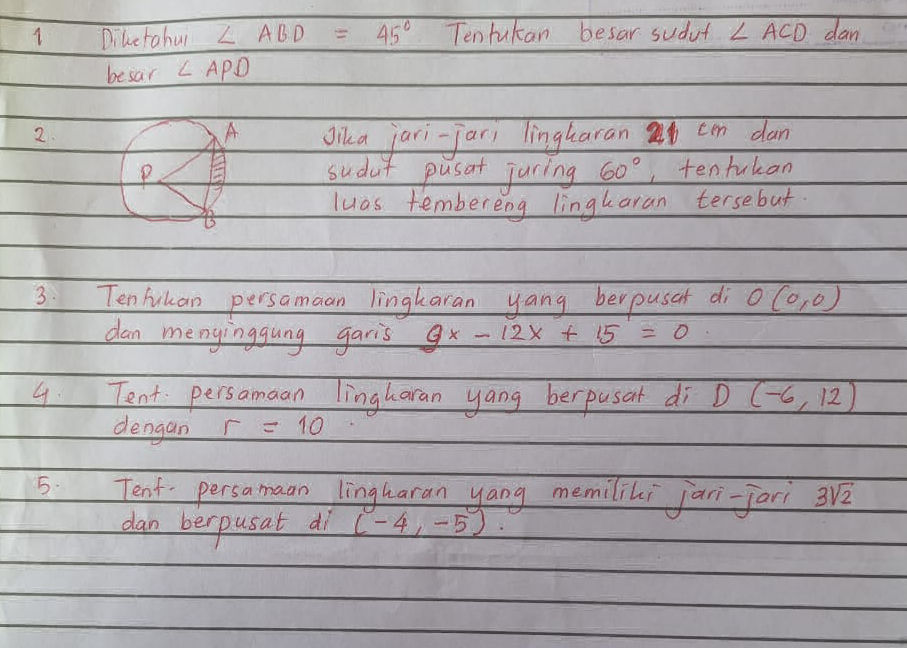 1 Diketahui ∠ ABD = 45° Tentukan besar sudut ∠ ACD dan
besar ∠ APD
2. A Jika jari-jari lingkaran 21 cm dan
P sudut pusat juring 60°, tentukan
B luas tembereng lingkaran tersebut.
3. Tentukan persamaan lingkaran yang berpusat di O (0,0)
dan menyinggung garis 9x - 12x + 15 = 0.
4. Tent. persamaan lingkaran yang berpusat di D (-6, 12)
dengan r = 10.
5. Tent. persamaan lingkaran yang memiliki jari-jari 3√2
dan berpusat di (-4, -5).